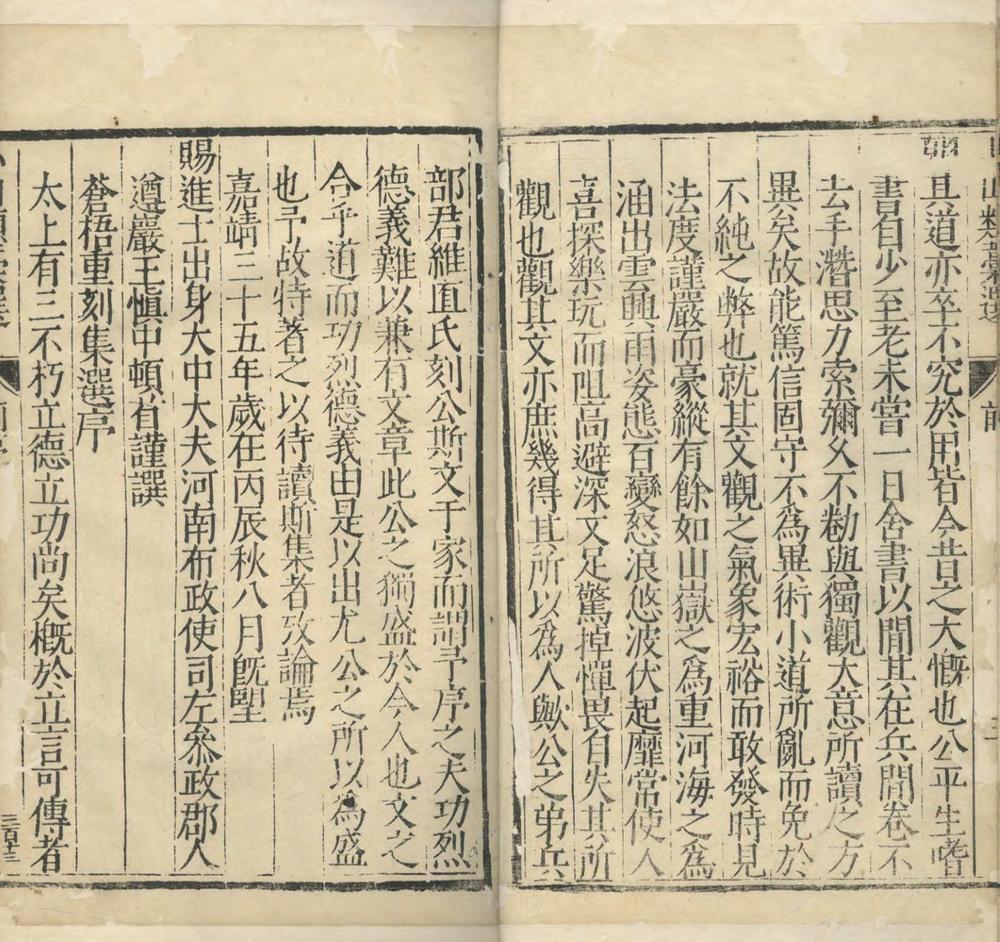 山類藁選
前
其道亦卒不究於用皆今昔之大慨也公平生嗜
書自少至老未嘗一日舍書以閒其在兵間卷不
去手潛思力索彌久不勌與獨觀大意所讀之方
異矣故能篤信固守不為異術小道所亂而免於
不純之弊也就其文觀之氣象宏裕而敢發時見
法度謹嚴而豪縱有餘如山嶽之為重河海之為
涵出雲興雨姿態百變怒浪悠波伏起靡常使人
喜探樂玩而阻高避深又足驚掉憚畏自失其所
觀也觀其文亦庶幾得其所以為人歟公之弟兵
部君維直氏刻公斯文于家而謂予序之夫功烈
德義難以兼有文章此公之獨盛於今人也文之
合乎道而功烈德義由是以出尤公之所以為盛
也予故特著之以待讀斯集者攷論焉
嘉靖三十五年歲在丙辰秋八月旣望
賜進士出身大中大夫河南布政使司左叅政郡人
遵巖王愼中頓首謹譔
蒼梧重刻集選序
太上有三不朽立德立功尚矣槪於立言可傳者
三百十三